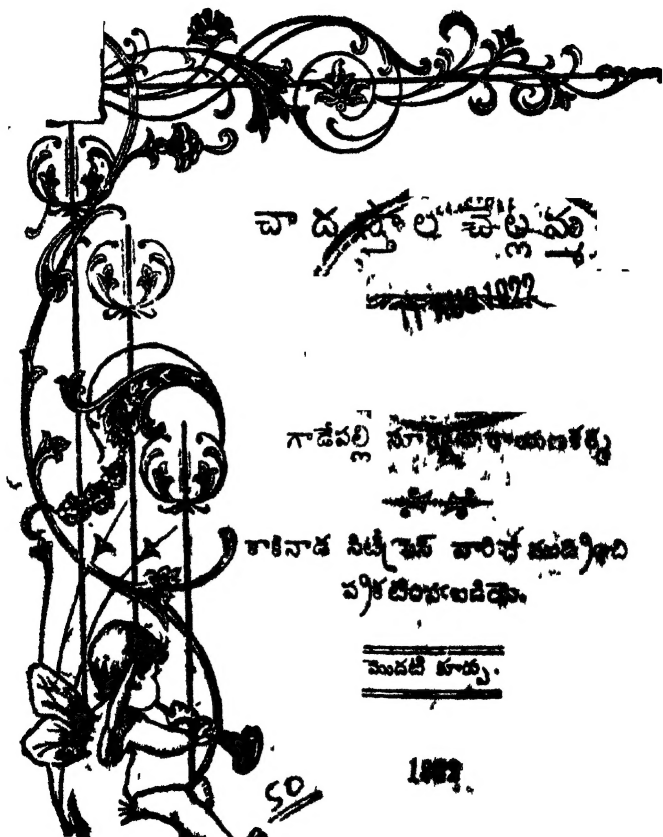 చాదస్తాల చెల్లమ్మ
1922
గాడేపల్లి సూర్యనారాయణశర్మ
కాకినాడ సిటీ ప్రెస్ వారిచే ముద్రించి
ప్రకటింపబడియె.
మొదటి కూర్పు.
50